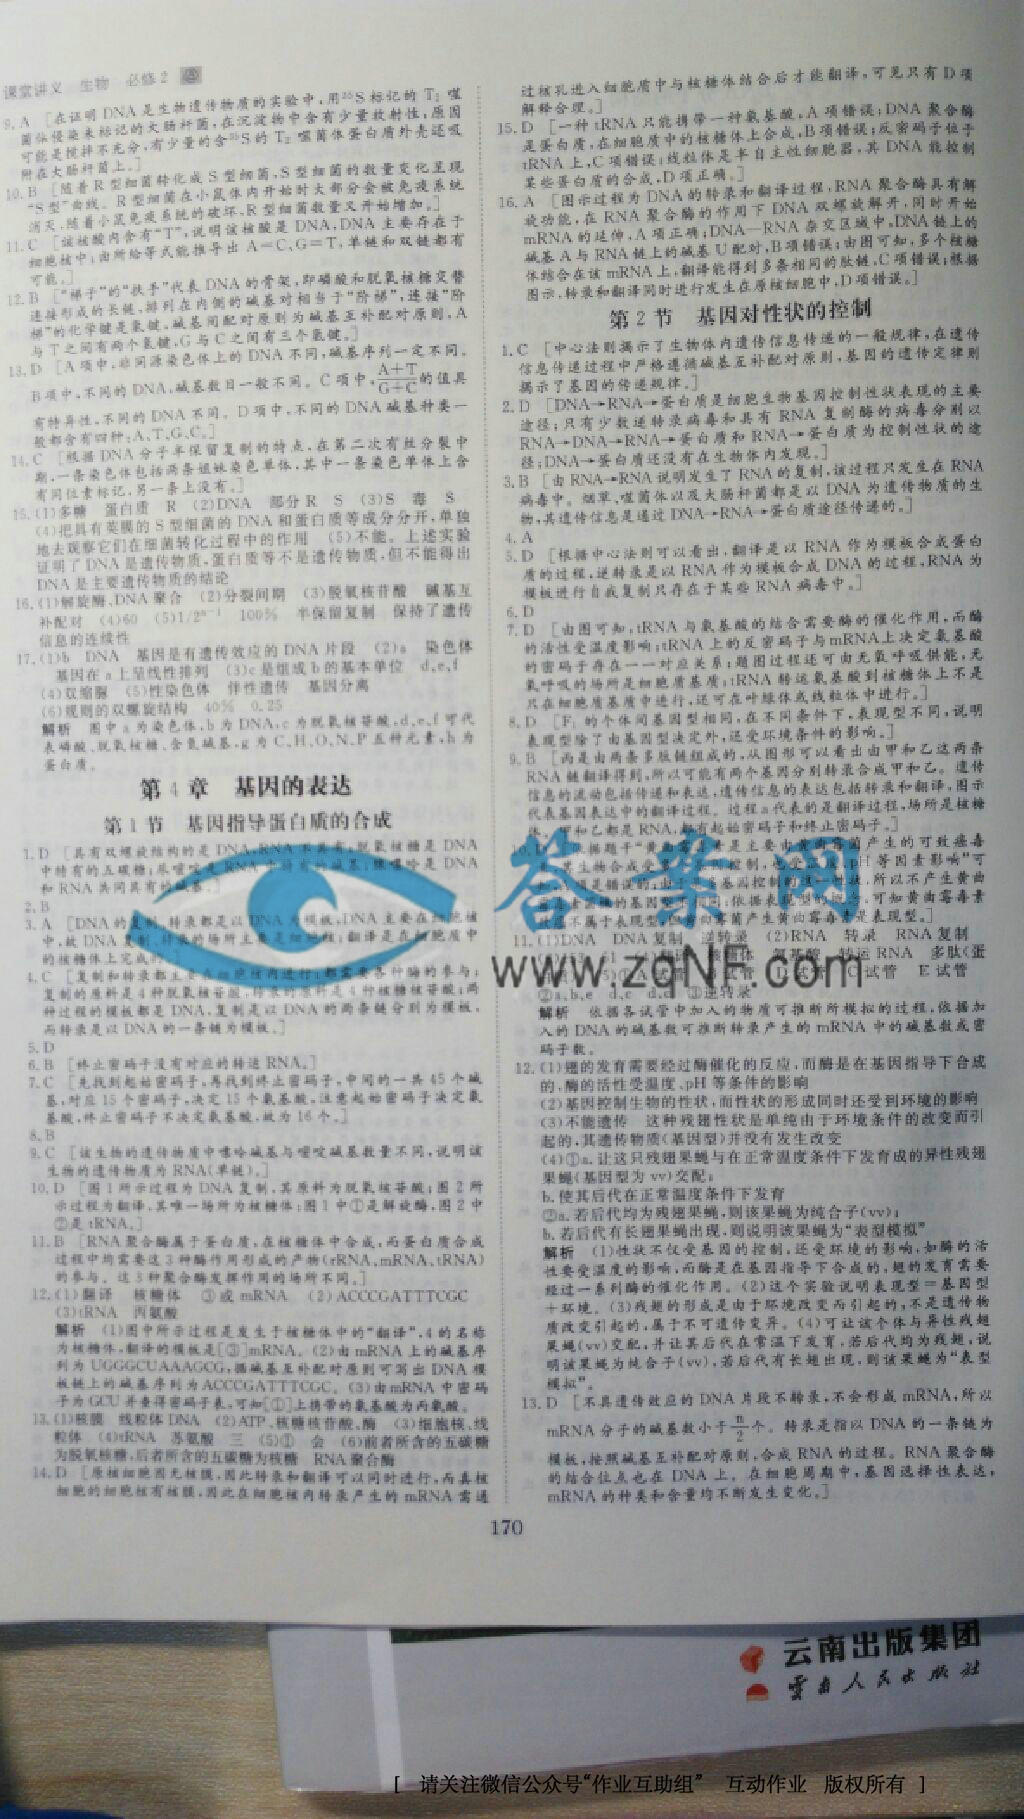 课堂讲义 生物 必修2
9. A [在证明DNA是生物遗传物质的实验中,用³⁵S标记的T₂噬
菌体侵染未标记的大肠杆菌,在沉淀物中含有少量放射性,原因
可能是搅拌不充分,有少量的含³⁵S的T₂噬菌体蛋白质外壳还吸
附在大肠杆菌上。]
10. B [随着R型细菌转化成S型细菌,S型细菌的数量变化呈现
“S型”曲线。R型细菌在小鼠体内开始时大部分会被免疫系统
消灭,随着小鼠免疫系统的破坏,R型细菌数量又开始增加。]
11. C [该核酸内含有“T”,说明该核酸是DNA,DNA主要存在于
细胞核中;由所给等式能推导出A=C,G=T,单链和双链都有
可能。]
12. B [“梯子”的“扶手”代表DNA的骨架,即磷酸和脱氧核糖交替
连接形成的长链,排列在内侧的碱基对相当于“阶梯”,连接“阶
梯”的化学键是氢键,碱基间配对原则为碱基互补配对原则,A
与T之间有两个氢键,G与C之间有三个氢键。]
13. D [A项中,非同源染色体上的DNA不同,碱基序列一定不同。
B项中,不同的DNA,碱基数目一般不同。C项中,(A+T)/(G+C)的值具
有特异性,不同的DNA不同。D项中,不同的DNA碱基种类一
般都含有四种:A、T、G、C。]
14. C [根据DNA分子半保留复制的特点,在第二次有丝分裂中
期,一条染色体包括两条姐妹染色单体,其中一条染色单体上含
有同位素标记,另一条上没有。]
15. (1)多糖 蛋白质 R (2)DNA 部分R S (3)S 毒 S
(4)把具有荚膜的S型细菌的DNA和蛋白质等成分分开,单独
地去观察它们在细菌转化过程中的作用 (5)不能。上述实验
证明了DNA是遗传物质,蛋白质等不是遗传物质,但不能得出
DNA是主要遗传物质的结论
16. (1)解旋酶、DNA聚合 (2)分裂间期 (3)脱氧核苷酸 碱基互
补配对 (4)60 (5)1/2ⁿ⁻¹ 100% 半保留复制 保持了遗传
信息的连续性
17. (1)b DNA 基因是有遗传效应的DNA片段 (2)a 染色体
基因在a上呈线性排列 (3)c是组成b的基本单位 d、e、f
(4)双缩脲 (5)性染色体 伴性遗传 基因分离
(6)规则的双螺旋结构 40% 0.25
解析 图中a为染色体,b为DNA,c为脱氧核苷酸,d、e、f可代
表磷酸、脱氧核糖、含氮碱基,g为C、H、O、N、P五种元素,h为
蛋白质。
第4章 基因的表达
第1节 基因指导蛋白质的合成
1. D [具有双螺旋结构的是DNA,RNA不具有;脱氧核糖是DNA
中特有的五碳糖;尿嘧啶是RNA中特有的碱基;腺嘌呤是DNA
和RNA共同具有的碱基。]
2. B
3. A [DNA的复制、转录都是以DNA为模板,DNA主要在细胞核
中,故DNA复制、转录的场所主要是细胞核;翻译是在细胞质中
的核糖体上完成的。]
4. C [复制和转录都主要在细胞核内进行;都需要各种酶的参与;
复制的原料是4种脱氧核苷酸,转录的原料是4种核糖核苷酸;两
种过程的模板都是DNA,复制是以DNA的两条链分别为模板,
而转录是以DNA的一条链为模板。]
5. D
6. B [终止密码子没有对应的转运RNA。]
7. C [先找到起始密码子,再找到终止密码子,中间的一共45个碱
基,对应15个密码子,决定15个氨基酸,注意起始密码子决定氨
基酸,终止密码子不决定氨基酸,故为16个。]
8. B
9. C [该生物的遗传物质中嘌呤碱基与嘧啶碱基数量不同,说明该
生物的遗传物质为RNA(单链)。]
10. D [图1所示过程为DNA复制,其原料为脱氧核苷酸;图2所
示过程为翻译,其唯一场所为核糖体;图1中①是解旋酶,图2中
②是tRNA。]
11. B [RNA聚合酶属于蛋白质,在核糖体中合成,而蛋白质合成
过程中均需要这3种酶作用形成的产物(rRNA、mRNA、tRNA)
的参与。这3种聚合酶发挥作用的场所不同。]
12. (1)翻译 核糖体 ③或mRNA (2)ACCCGATTTCGC
(3)tRNA 丙氨酸
解析 (1)图中所示过程是发生于核糖体中的“翻译”,4的名称
为核糖体,翻译的模板是[③]mRNA。(2)由mRNA上的碱基序
列为UGGGCUAAAGCG,据碱基互补配对原则可写出DNA模
板链上的碱基序列为ACCCGATTTCGC。(3)由mRNA中密码
子为GCU并查得密码子表,可知[①]上携带的氨基酸为丙氨酸。
13. (1)核膜 线粒体DNA (2)ATP、核糖核苷酸、酶 (3)细胞核、线
粒体 (4)tRNA 苏氨酸 三 (5)① 会 (6)前者所含的五碳糖
为脱氧核糖,后者所含的五碳糖为核糖 RNA聚合酶
14. D [原核细胞因无核膜,因此转录和翻译可以同时进行,而真核
细胞的细胞核有核膜,因此在细胞核内转录产生的mRNA需通
过核孔进入细胞质中与核糖体结合后才能翻译,可见只有D项
解释合理。]
15. D [一种tRNA只能携带一种氨基酸,A项错误;DNA聚合酶
是蛋白质,在细胞质中的核糖体上合成,B项错误;反密码子位于
tRNA上,C项错误;线粒体是半自主性细胞器,其DNA能控制
某些蛋白质的合成,D项正确。]
16. A [图示过程为DNA的转录和翻译过程,RNA聚合酶具有解
旋功能,在RNA聚合酶的作用下DNA双螺旋解开,同时开始
mRNA的延伸,A项正确;DNA—RNA杂交区域中,DNA链上的
碱基A与RNA链上的碱基U配对,B项错误;由图可知,多个核糖
体结合在该mRNA上,翻译能得到多条相同的肽链,C项错误;根据
图示,转录和翻译同时进行发生在原核细胞中,D项错误。]
第2节 基因对性状的控制
1. C [中心法则揭示了生物体内遗传信息传递的一般规律,在遗传
信息传递过程中严格遵循碱基互补配对原则,基因的遗传定律则
揭示了基因的传递规律。]
2. D [DNA→RNA→蛋白质是细胞生物基因控制性状表现的主要
途径;只有少数逆转录病毒和具有RNA复制酶的病毒分别以
RNA→DNA→RNA→蛋白质和RNA→蛋白质为控制性状的途
径;DNA→蛋白质还没有在生物体内发现。]
3. B [由RNA→RNA说明发生了RNA的复制,该过程只发生在RNA
病毒中。烟草、噬菌体以及大肠杆菌都是以DNA为遗传物质的生
物,其遗传信息是通过DNA→RNA→蛋白质途径传递的。]
4. A
5. D [根据中心法则可以看出,翻译是以RNA作为模板合成蛋白
质的过程,逆转录是以RNA作为模板合成DNA的过程,RNA为
模板进行自我复制只存在于某些RNA病毒中。]
6. D
7. D [由图可知,tRNA与氨基酸的结合需要酶的催化作用,而酶
的活性受温度影响;tRNA上的反密码子与mRNA上决定氨基酸
的密码子存在一一对应关系;题图过程还可由无氧呼吸供能,无
氧呼吸的场所是细胞质基质;tRNA转运氨基酸到核糖体上不是
只在细胞质基质中进行,还可在叶绿体或线粒体中进行。]
8. D [F₁的个体间基因型相同,在不同条件下,表现型不同,说明
表现型除了由基因型决定外,还受环境条件的影响。]
9. B [丙是由两条多肽链组成的,从图形可以看出由甲和乙这两条
RNA链翻译得到,所以可能有两个基因分别转录合成甲和乙。遗传
信息的流动包括传递和表达,遗传信息的表达包括转录和翻译,图示
代表基因表达中的翻译过程。过程a代表的是翻译过程,场所是核糖
体。甲和乙都是RNA,都有起始密码子和终止密码子。]
10. D [根据题干“黄曲霉毒素是主要由黄曲霉菌产生的可致癌毒
素,其生物合成受多个基因控制,也受温度、pH等因素影响”可
项是错误的;由于 基因控制的这一性状,所以不产生黄曲
霉毒素菌株的基因型不相同;依据表现型的概念,可知黄曲霉毒素
致癌不属于表现型,黄曲霉菌产生黄曲霉毒素是表现型。]
11. (1)DNA DNA复制 逆转录 (2)RNA 转录 RNA复制
核糖体 氨基酸 转运RNA 多肽(蛋
①A试管 B试管 D试管 C试管 E试管
②a、b、e d、c d、d ③逆转录
解析 依据各试管中加入的物质可推断所模拟的过程,依据加
入的DNA的碱基数可推断转录产生的mRNA中的碱基数或密
码子数。
12. (1)翅的发育需要经过酶催化的反应,而酶是在基因指导下合成
的,酶的活性受温度、pH等条件的影响
(2)基因控制生物的性状,而性状的形成同时还受到环境的影响
(3)不能遗传 这种残翅性状是单纯由于环境条件的改变而引
起的,其遗传物质(基因型)并没有发生改变
(4)①a.让这只残翅果蝇与在正常温度条件下发育成的异性残翅
果蝇(基因型为vv)交配;
b.使其后代在正常温度条件下发育
②a.若后代均为残翅果蝇,则该果蝇为纯合子(vv);
b.若后代有长翅果蝇出现,则说明该果蝇为“表型模拟”
解析 (1)性状不仅受基因的控制,还受环境的影响,如酶的活
性要受温度的影响,而酶是在基因指导下合成的,翅的发育需要
经过一系列酶的催化作用。(2)这个实验说明表现型=基因型
+环境。(3)残翅的形成是由于环境改变而引起的,不是遗传物
质改变引起的,属于不可遗传变异。(4)可让该个体与异性残翅
果蝇(vv)交配,并让其后代在常温下发育,若后代均为残翅,说
明该果蝇为纯合子(vv),若后代有长翅出现,则该果蝇为“表型
模拟”。
13. D [不具遗传效应的DNA片段不转录,不会形成mRNA,所以
mRNA分子的碱基数小于n/2个。转录是指以DNA的一条链为
模板,按照碱基互补配对原则,合成RNA的过程。RNA聚合酶
的结合位点也在DNA上。在细胞周期中,基因选择性表达,
mRNA的种类和含量均不断发生变化。]
170
答案网
www.zqNF.com
云南出版集团
云南人民出版社
[ 请关注微信公众号“作业互助组” 互动作业 版权所有 ]